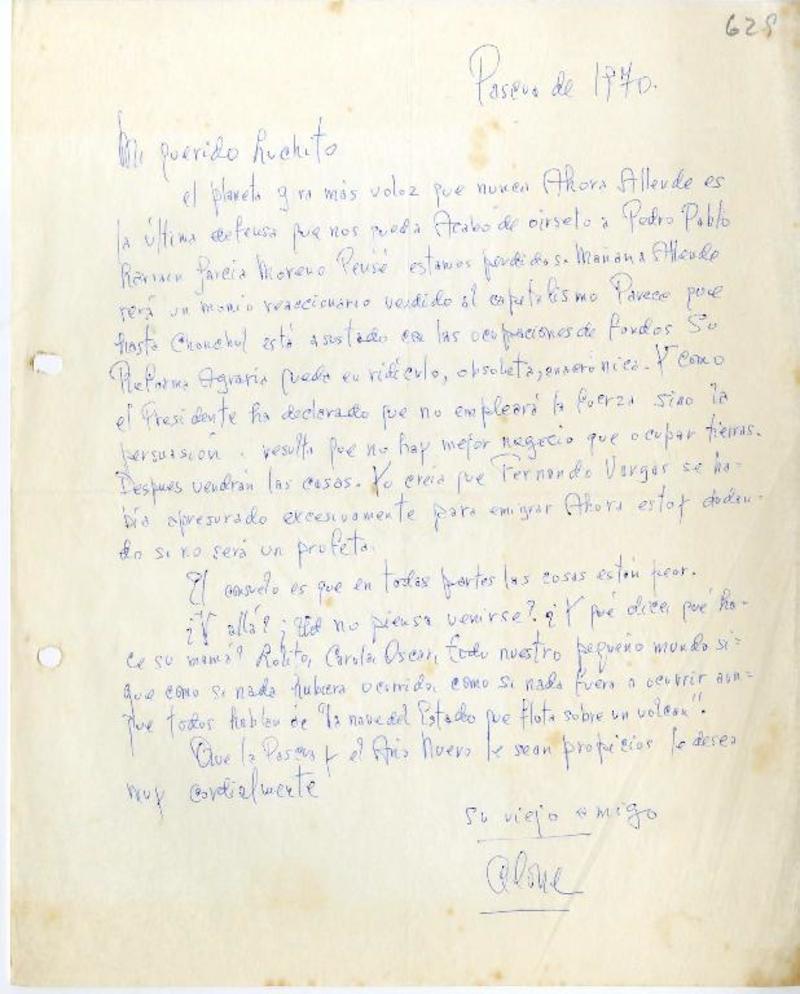 628
Pascua de 1970.
Mi querido Luchito
el planeta gira más veloz que nunca Ahora Allende es
la última defensa que nos queda Acabo de oírselo a Pedro Pablo
Larrain García Moreno Pensé estamos perdidos. Mañana Allende
será un momio reaccionario vendido al capitalismo Parece que
hasta Chonchol está asustado con las ocupaciones de fundos Su
Reforma Agraria queda en ridículo, obsoleta, anacrónica. Y como
el Presidente ha declarado que no empleará la fuerza sino la
persuasión, resulta que no hay mejor negocio que ocupar tierras.
Despues vendrán las casas. Yo creía que Fernando Vargas se ha-
bía apresurado excesivamente para emigrar Ahora estoy dudan-
do si no será un profeta.
El consuelo es que en todas partes las cosas están peor.
¿Y allá? ¿Ud no piensa venirse? ¿Y qué dice, qué ha-
ce su mamá? Lolito, Carola, Oscar, todo nuestro pequeño mundo si-
gue como si nada hubiera ocurrido, como si nada fuera a ocurrir aun-
que todos hablan de "la nave del Estado que flota sobre un volcan".
Que la Pascua y el Año Nuevo le sean propicios le desea
muy cordialmente
su viejo amigo
Alone